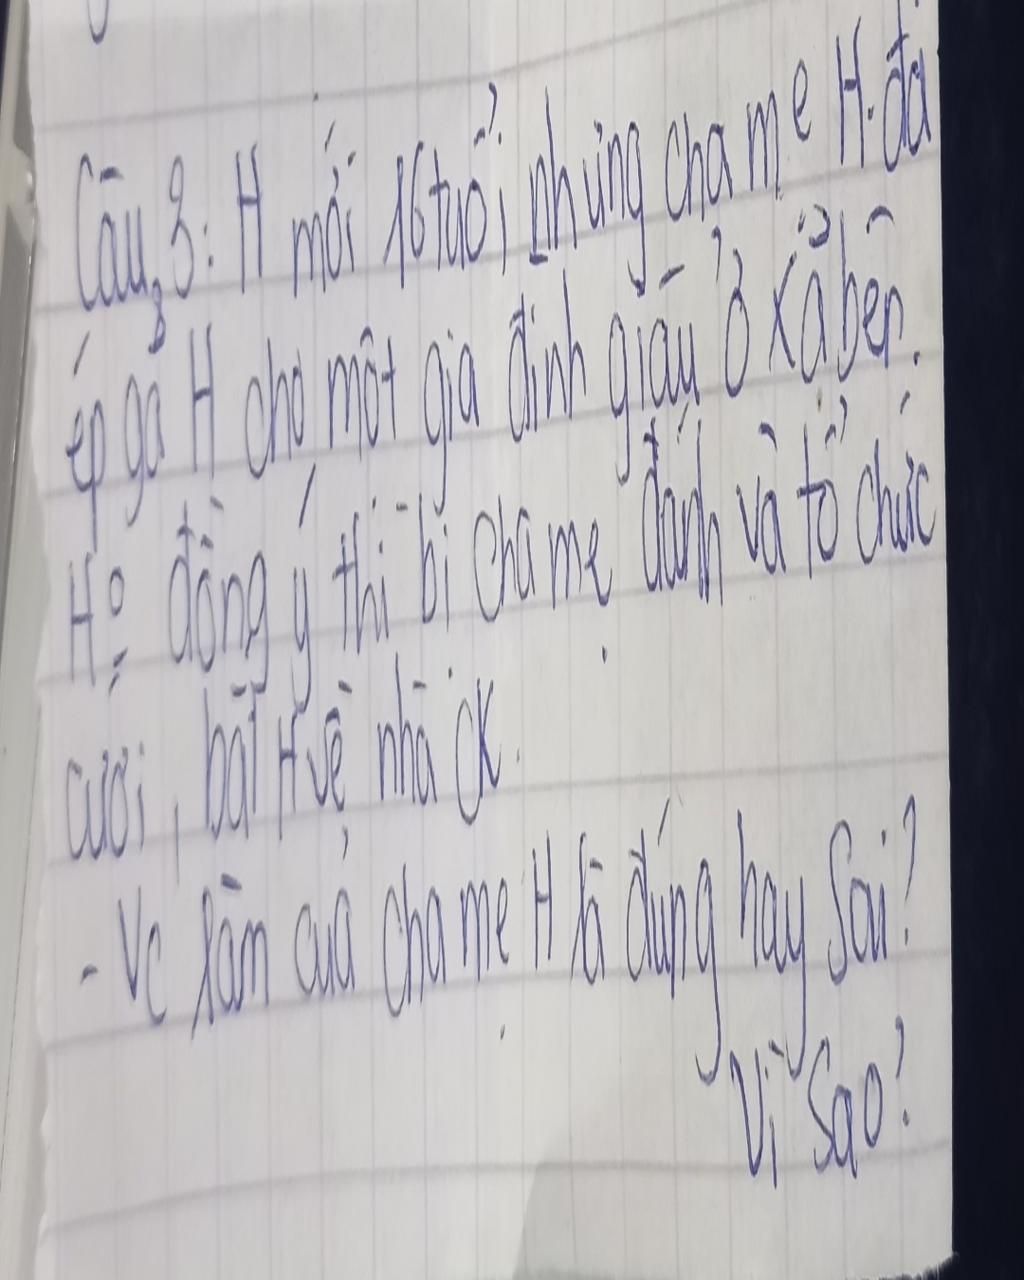 Câu 3: H mới 16 tuổi, nhưng cha mẹ H đã
ép gả H cho một gia đình giàu ở xã bên.
H đồng ý thì bị cha mẹ đánh và tổ chức
cưới, bắt H về nhà ck.
- Vc làm của cha mẹ H là đúng hay Sai?
Vì Sao?